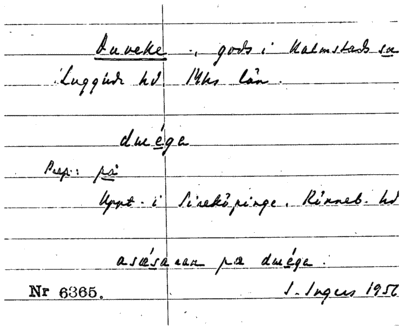 Duveke., gods i Kalmstads sn
Luggude hd Mhs län.
duéga
Prep: på
Uppt. i Sireköpinge, Rönneb. hd
pa duéga.
Nr 6365. S. Ingers 1956